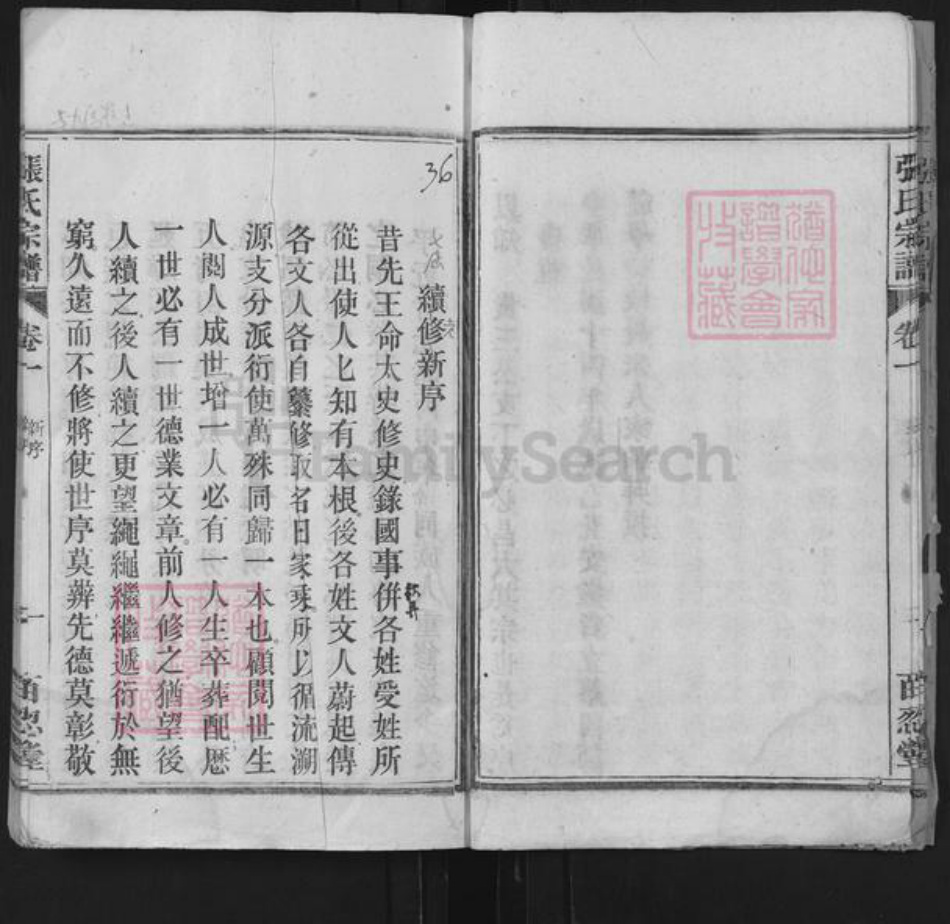 36
續修新序
昔先王命太史修史錄國事併各姓受姓所
從出使人匕知有本根後各姓文人蔚起傳
各文人各自纂修取名曰家乘所以循流溯
源支分派行使萬殊同歸一本也顧閱世生
人閱人成世增一人必有一人生卒葬配厯
一世必有一世德業文章前人修之猶望後
人續之後人續之更望繩繩繼繼遞衍於無
窮久遠而不修將使世序莫辨先德莫彰敬
張氏宗譜
卷一
新序
一
張氏宗譜
卷一
堂
譜學會
收藏
FamilySearch